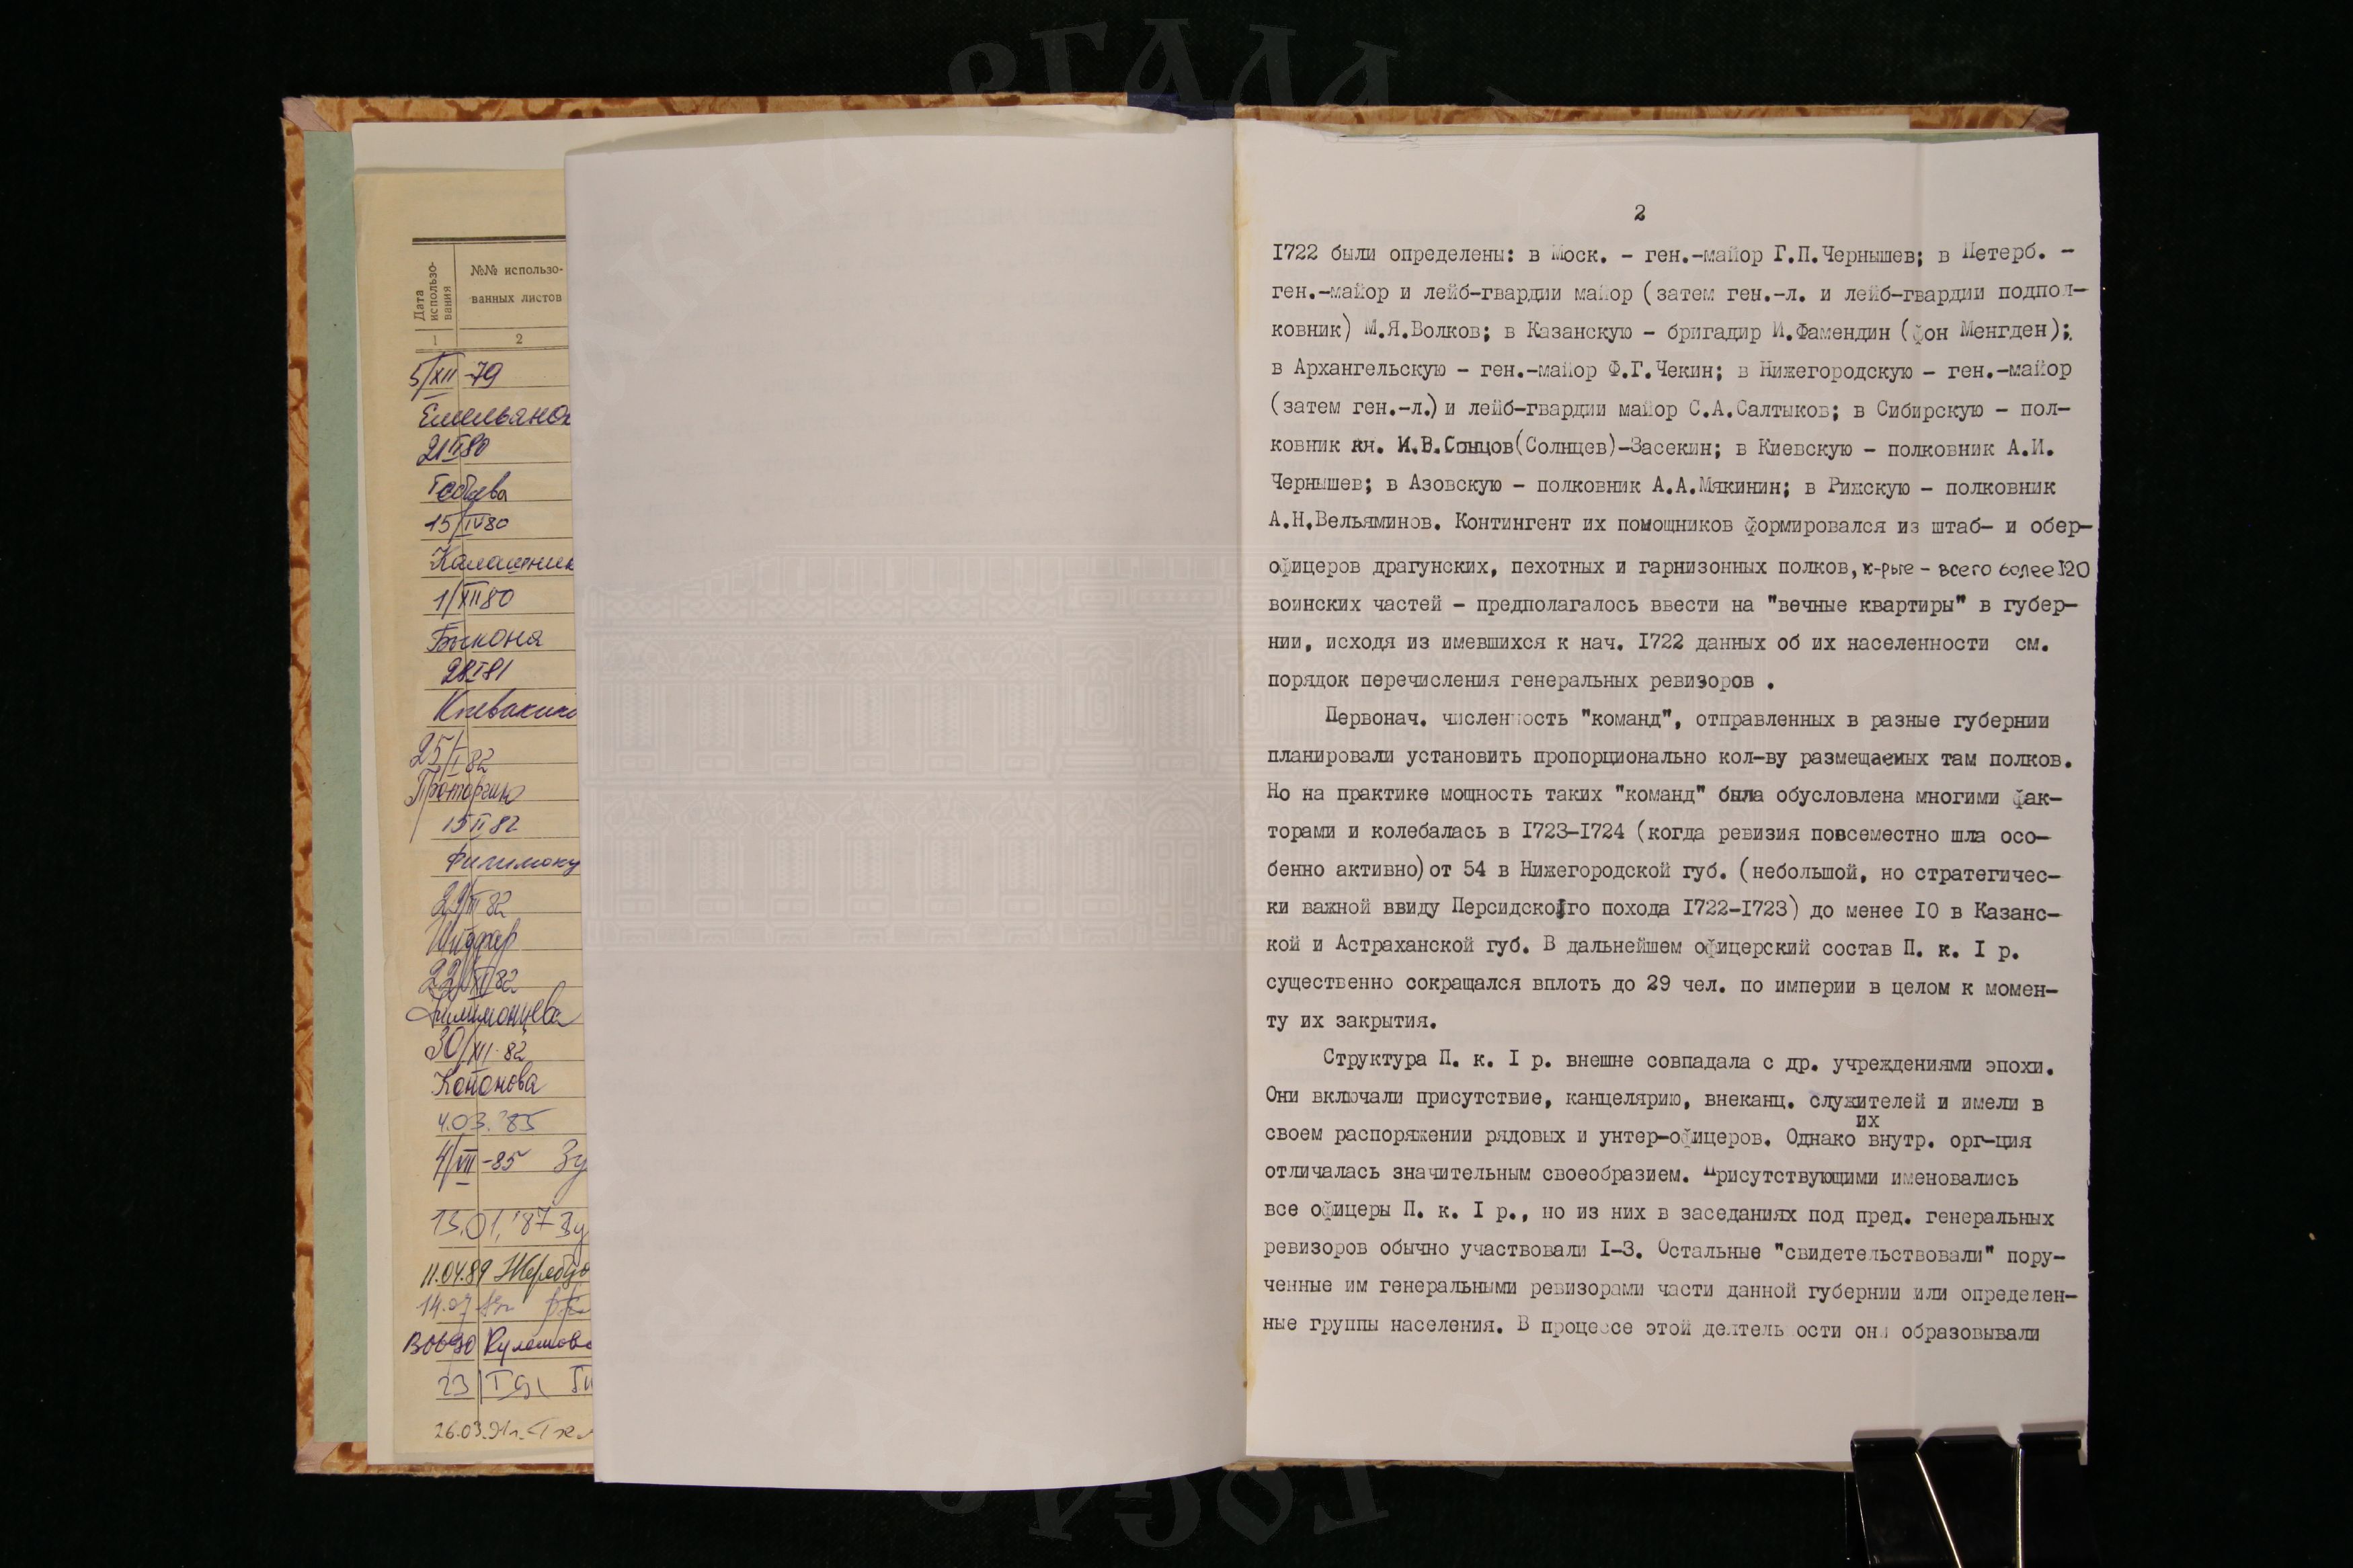 Дата
использо-
вания
№№ использо-
ванных листов
1
2
5/XII-79
21 II 80
15/IV 80
1/XII 80
Быконя
28 I 81
25/I 82
15 II 82
22/XI 82
30/XII-82
Кононова
4.03.'85
4/VII-85 Зу
13.01.'87 Зу
11.04.89
14.07
23
26.03.91г.
2
1722 были определены: в Моск. - ген.-майор Г.П.Чернышев; в Петерб. -
ген.-майор и лейб-гвардии майор (затем ген.-л. и лейб-гвардии подпол-
ковник) М.Я.Волков; в Казанскую - бригадир И.Фамендин (фон Менгден);
в Архангельскую - ген.-майор Ф.Г.Чекин; в Нижегородскую - ген.-майор
(затем ген.-л.) и лейб-гвардии майор С.А.Салтыков; в Сибирскую - пол-
ковник кн. И.В.Сонцов(Солнцев)-Засекин; в Киевскую - полковник А.И.
Чернышев; в Азовскую - полковник А.А.Мякинин; в Рижскую - полковник
А.Н.Вельяминов. Контингент их помощников формировался из штаб- и обер-
офицеров драгунских, пехотных и гарнизонных полков, к-рые - всего более 120
воинских частей - предполагалось ввести на "вечные квартиры" в губер-
нии, исходя из имевшихся к нач. 1722 данных об их населенности см.
порядок перечисления генеральных ревизоров .
Первонач. численность "команд", отправленных в разные губернии
планировали установить пропорционально кол-ву размещаемых там полков.
Но на практике мощность таких "команд" была обусловлена многими фак-
торами и колебалась в 1723-1724 (когда ревизия повсеместно шла осо-
бенно активно) от 54 в Нижегородской губ. (небольшой, но стратегичес-
ки важной ввиду Персидского похода 1722-1723) до менее 10 в Казанс-
кой и Астраханской губ. В дальнейшем офицерский состав П. к. I р.
существенно сокращался вплоть до 29 чел. по империи в целом к момен-
ту их закрытия.
Структура П. к. I р. внешне совпадала с др. учреждениями эпохи.
Они включали присутствие, канцелярию, внеканц. служителей и имели в
своем распоряжении рядовых и унтер-офицеров. Однако их внутр. орг-ция
отличалась значительным своеобразием. Присутствующими именовались
все офицеры П. к. I р., но из них в заседаниях под пред. генеральных
ревизоров обычно участвовали 1-3. Остальные "свидетельствовали" пору-
ченные им генеральными ревизорами части данной губернии или определен-
ные группы населения. В процессе этой деятельности они образовывали